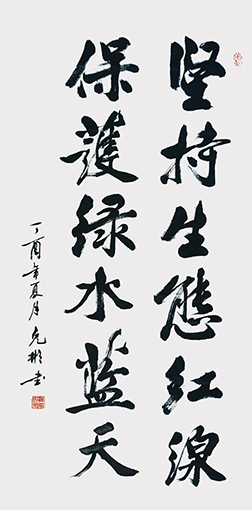 坚持生態红線
保護绿水蓝天
丁酉年夏月克彬书